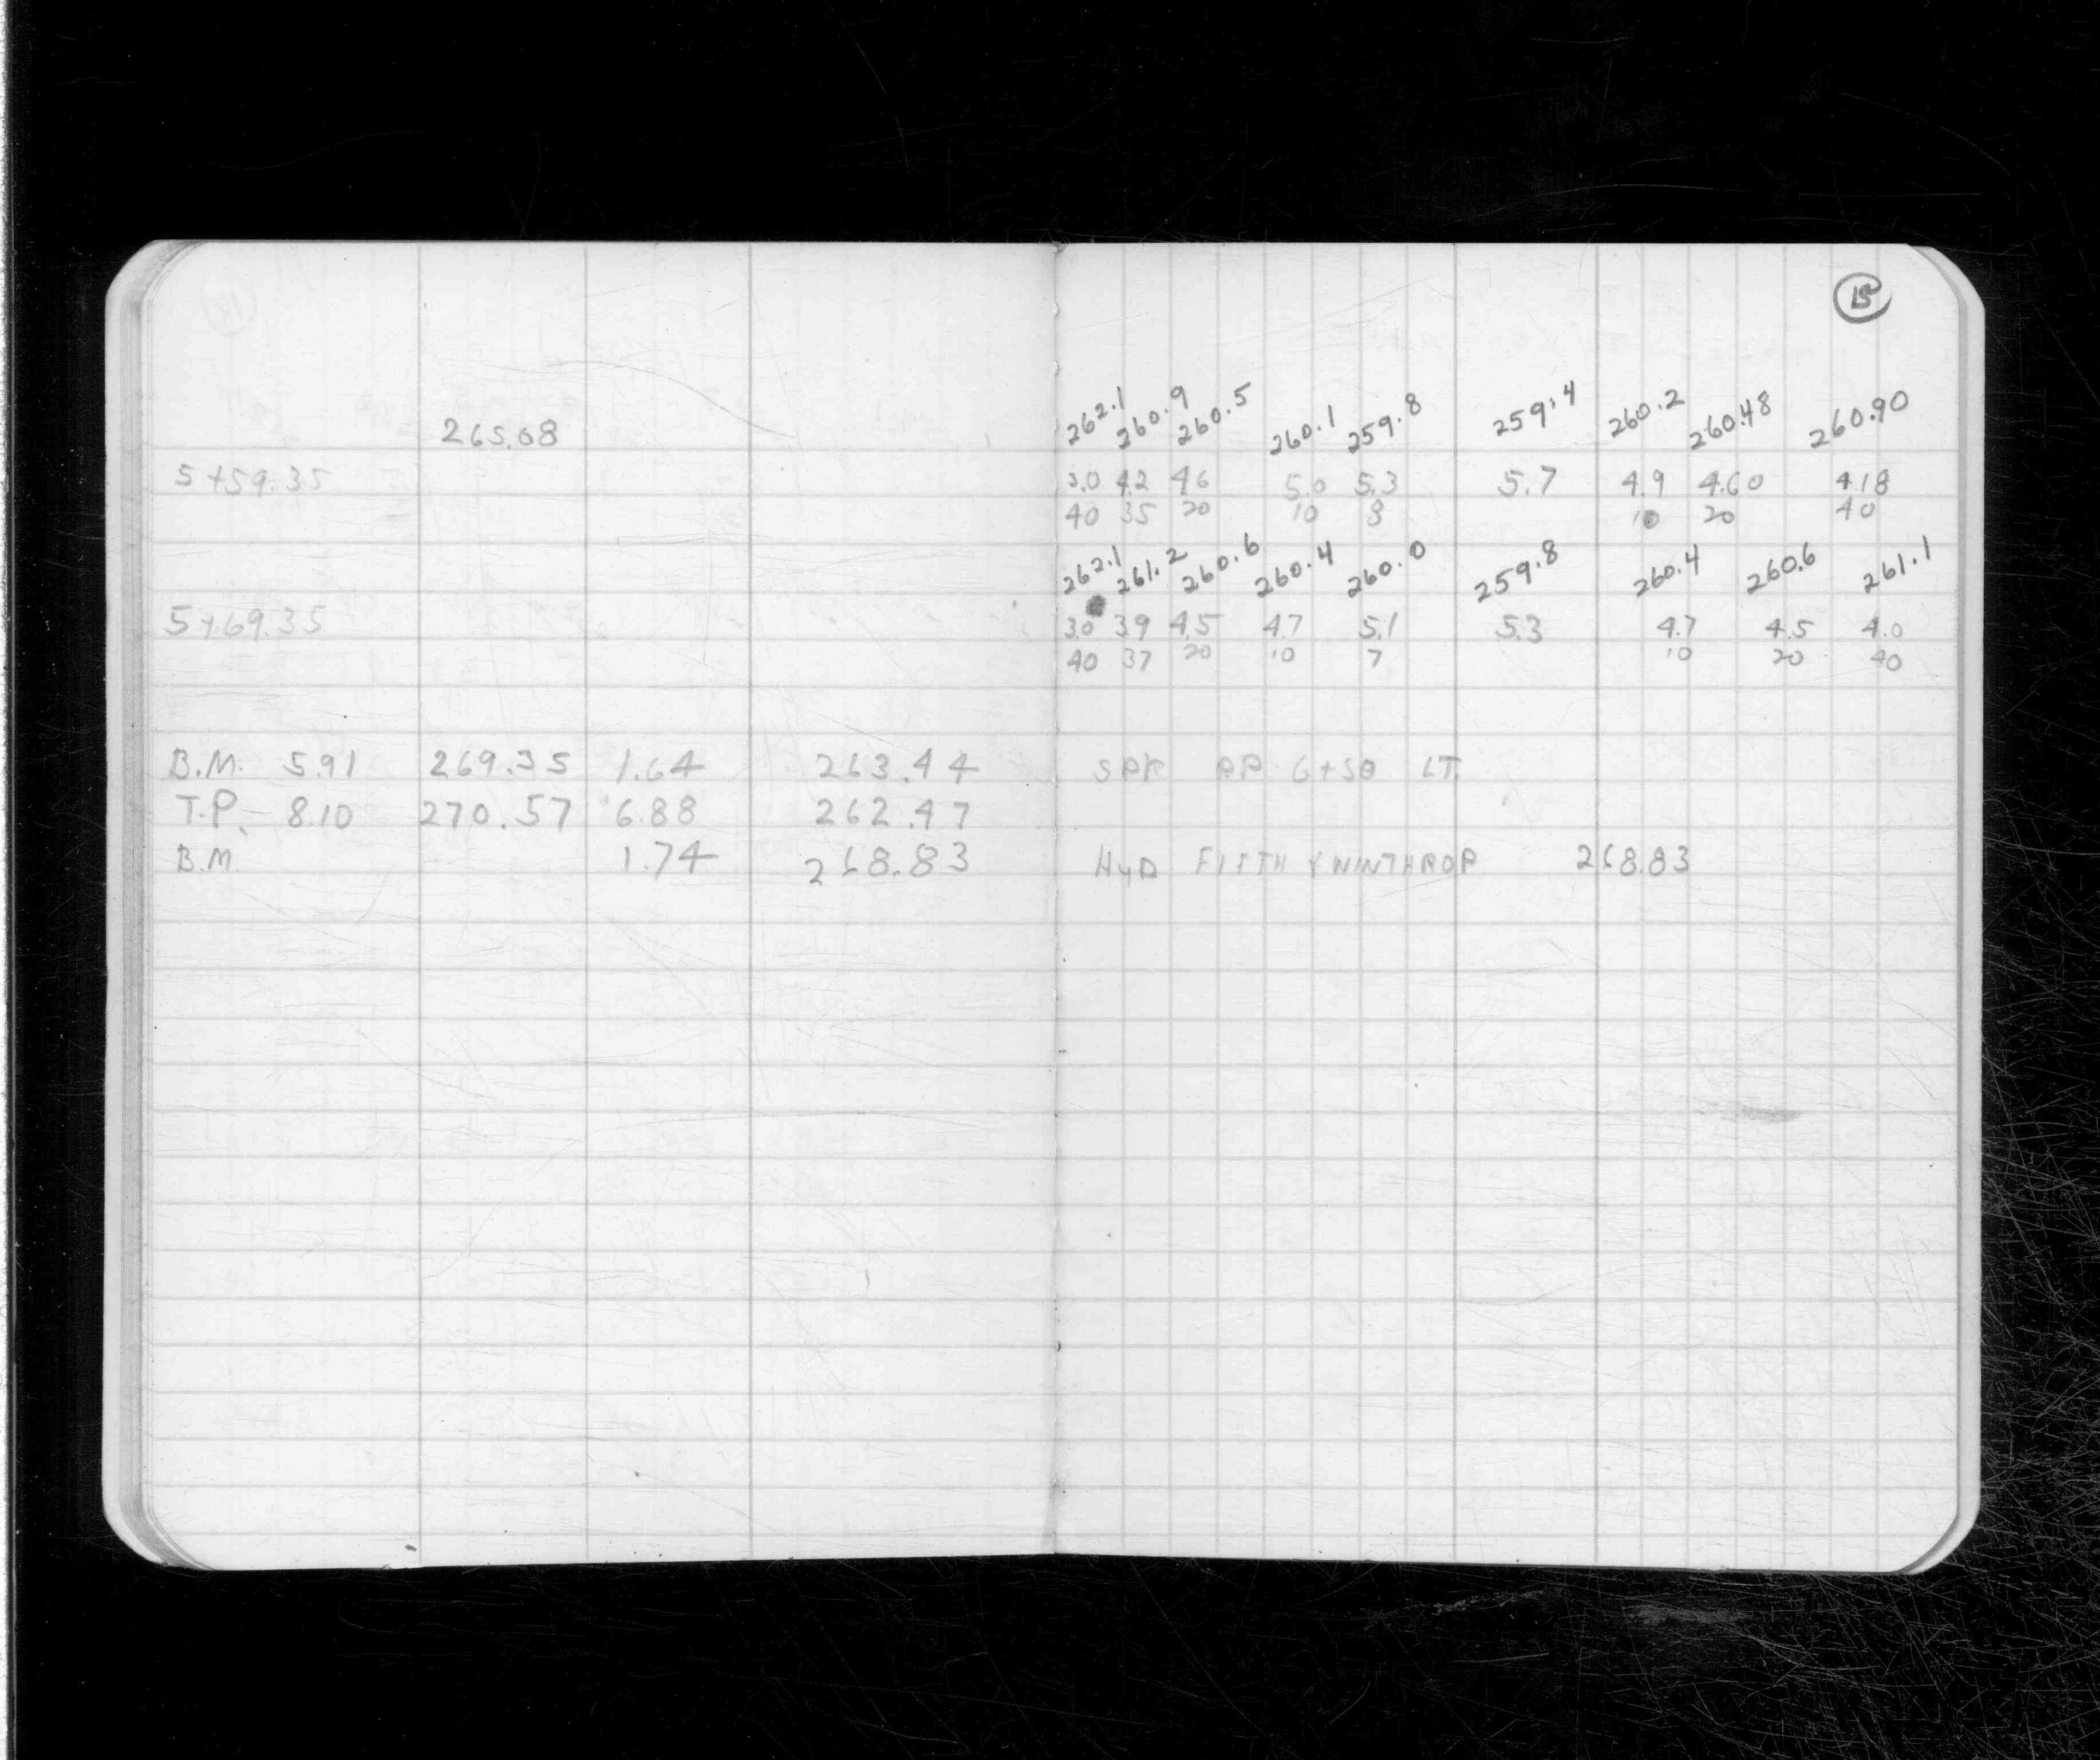 15
262.1 260.9 260.5 260.1 259.8 259.4 260.2 260.48 260.90
265.08
5+59.35 3.0 4.2 4.6 5.0 5.3 5.7 4.9 4.60 4.18
40 35 20 10 8 10 20 40
262.1 261.2 260.6 260.4 260.0 259.8 260.4 260.6 261.1
5+69.35 3.0 3.9 4.5 4.7 5.1 5.3 4.7 4.5 4.0
40 37 20 10 7 10 20 40
B.M. 5.91 269.35 1.64 263.44 SPK PP 6+50 LT.
T.P. 8.10 270.57 6.88 262.47
B.M. 1.74 268.83 HYD FIFTH & WINTHROP 268.83